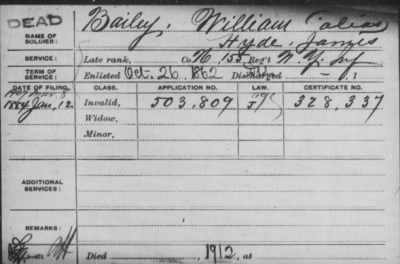 DEAD
NAME OF SOLDIER: Bailey, William (alias
Hyde, James
SERVICE: Late rank, Co. H. 155 Reg't N. Y. Inf
TERM OF SERVICE: Enlisted Oct. 26, 1862 Discharged , 1
DATE OF FILING. CLASS. APPLICATION NO. LAW. CERTIFICATE NO.
1884 Jan. 12. Invalid, 503,809 328,337
Widow,
Minor,
ADDITIONAL SERVICES:
REMARKS:
Died , 1912, at